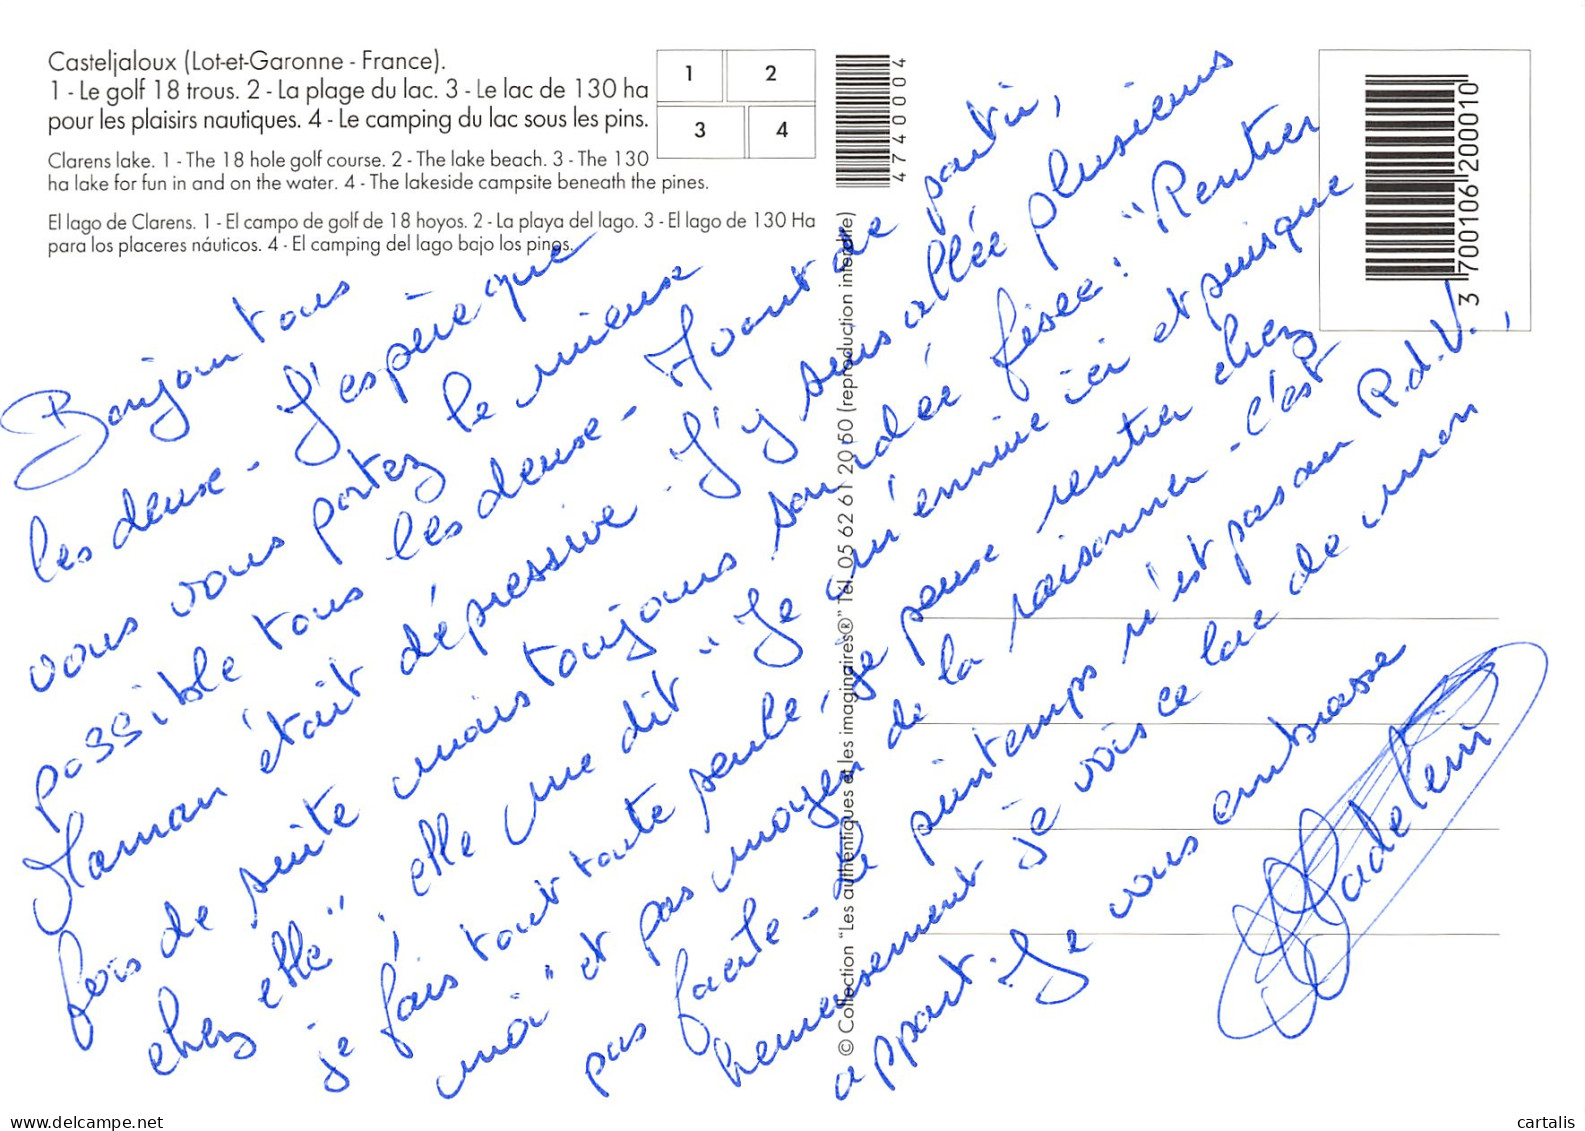 Casteljaloux (Lot-et-Garonne - France).
1 - Le golf 18 trous. 2 - La plage du lac. 3 - Le lac de 130 ha
pour les plaisirs nautiques. 4 - Le camping du lac sous les pins.
Clarens lake. 1 - The 18 hole golf course. 2 - The lake beach. 3 - The 130
ha lake for fun in and on the water. 4 - The lakeside campsite beneath the pines.
El lago de Clarens. 1 - El campo de golf de 18 hoyos. 2 - La playa del lago. 3 - El lago de 130 Ha
para los placeres náuticos. 4 - El camping del lago bajo los pinos.
1 2
3 4
4740004
3 700106 200010
© Collection "Les authentiques et les imaginaires®" Tél. 05 62 61 20 60 (reproduction interdite)
Bonjour tous
les deux - J'espère que
vous vous portez le mieux
possible tous les deux - Avant de partir,
Maman était dépressive. J'y suis allée plusieurs
fois de suite mais toujours son idée fixe : "Rentrer
chez elle", elle me dit "Je m'ennuie ici et puisque
je fais tout toute seule, je peux rentrer chez
moi" et pas moyen de la raisonner - c'est
pas facile - Le printemps n'est pas au R.d.V.,
heureusement je vois ce lac de mon
appart. Je vous embrasse
Madeleine
cartalis
delcampe.net